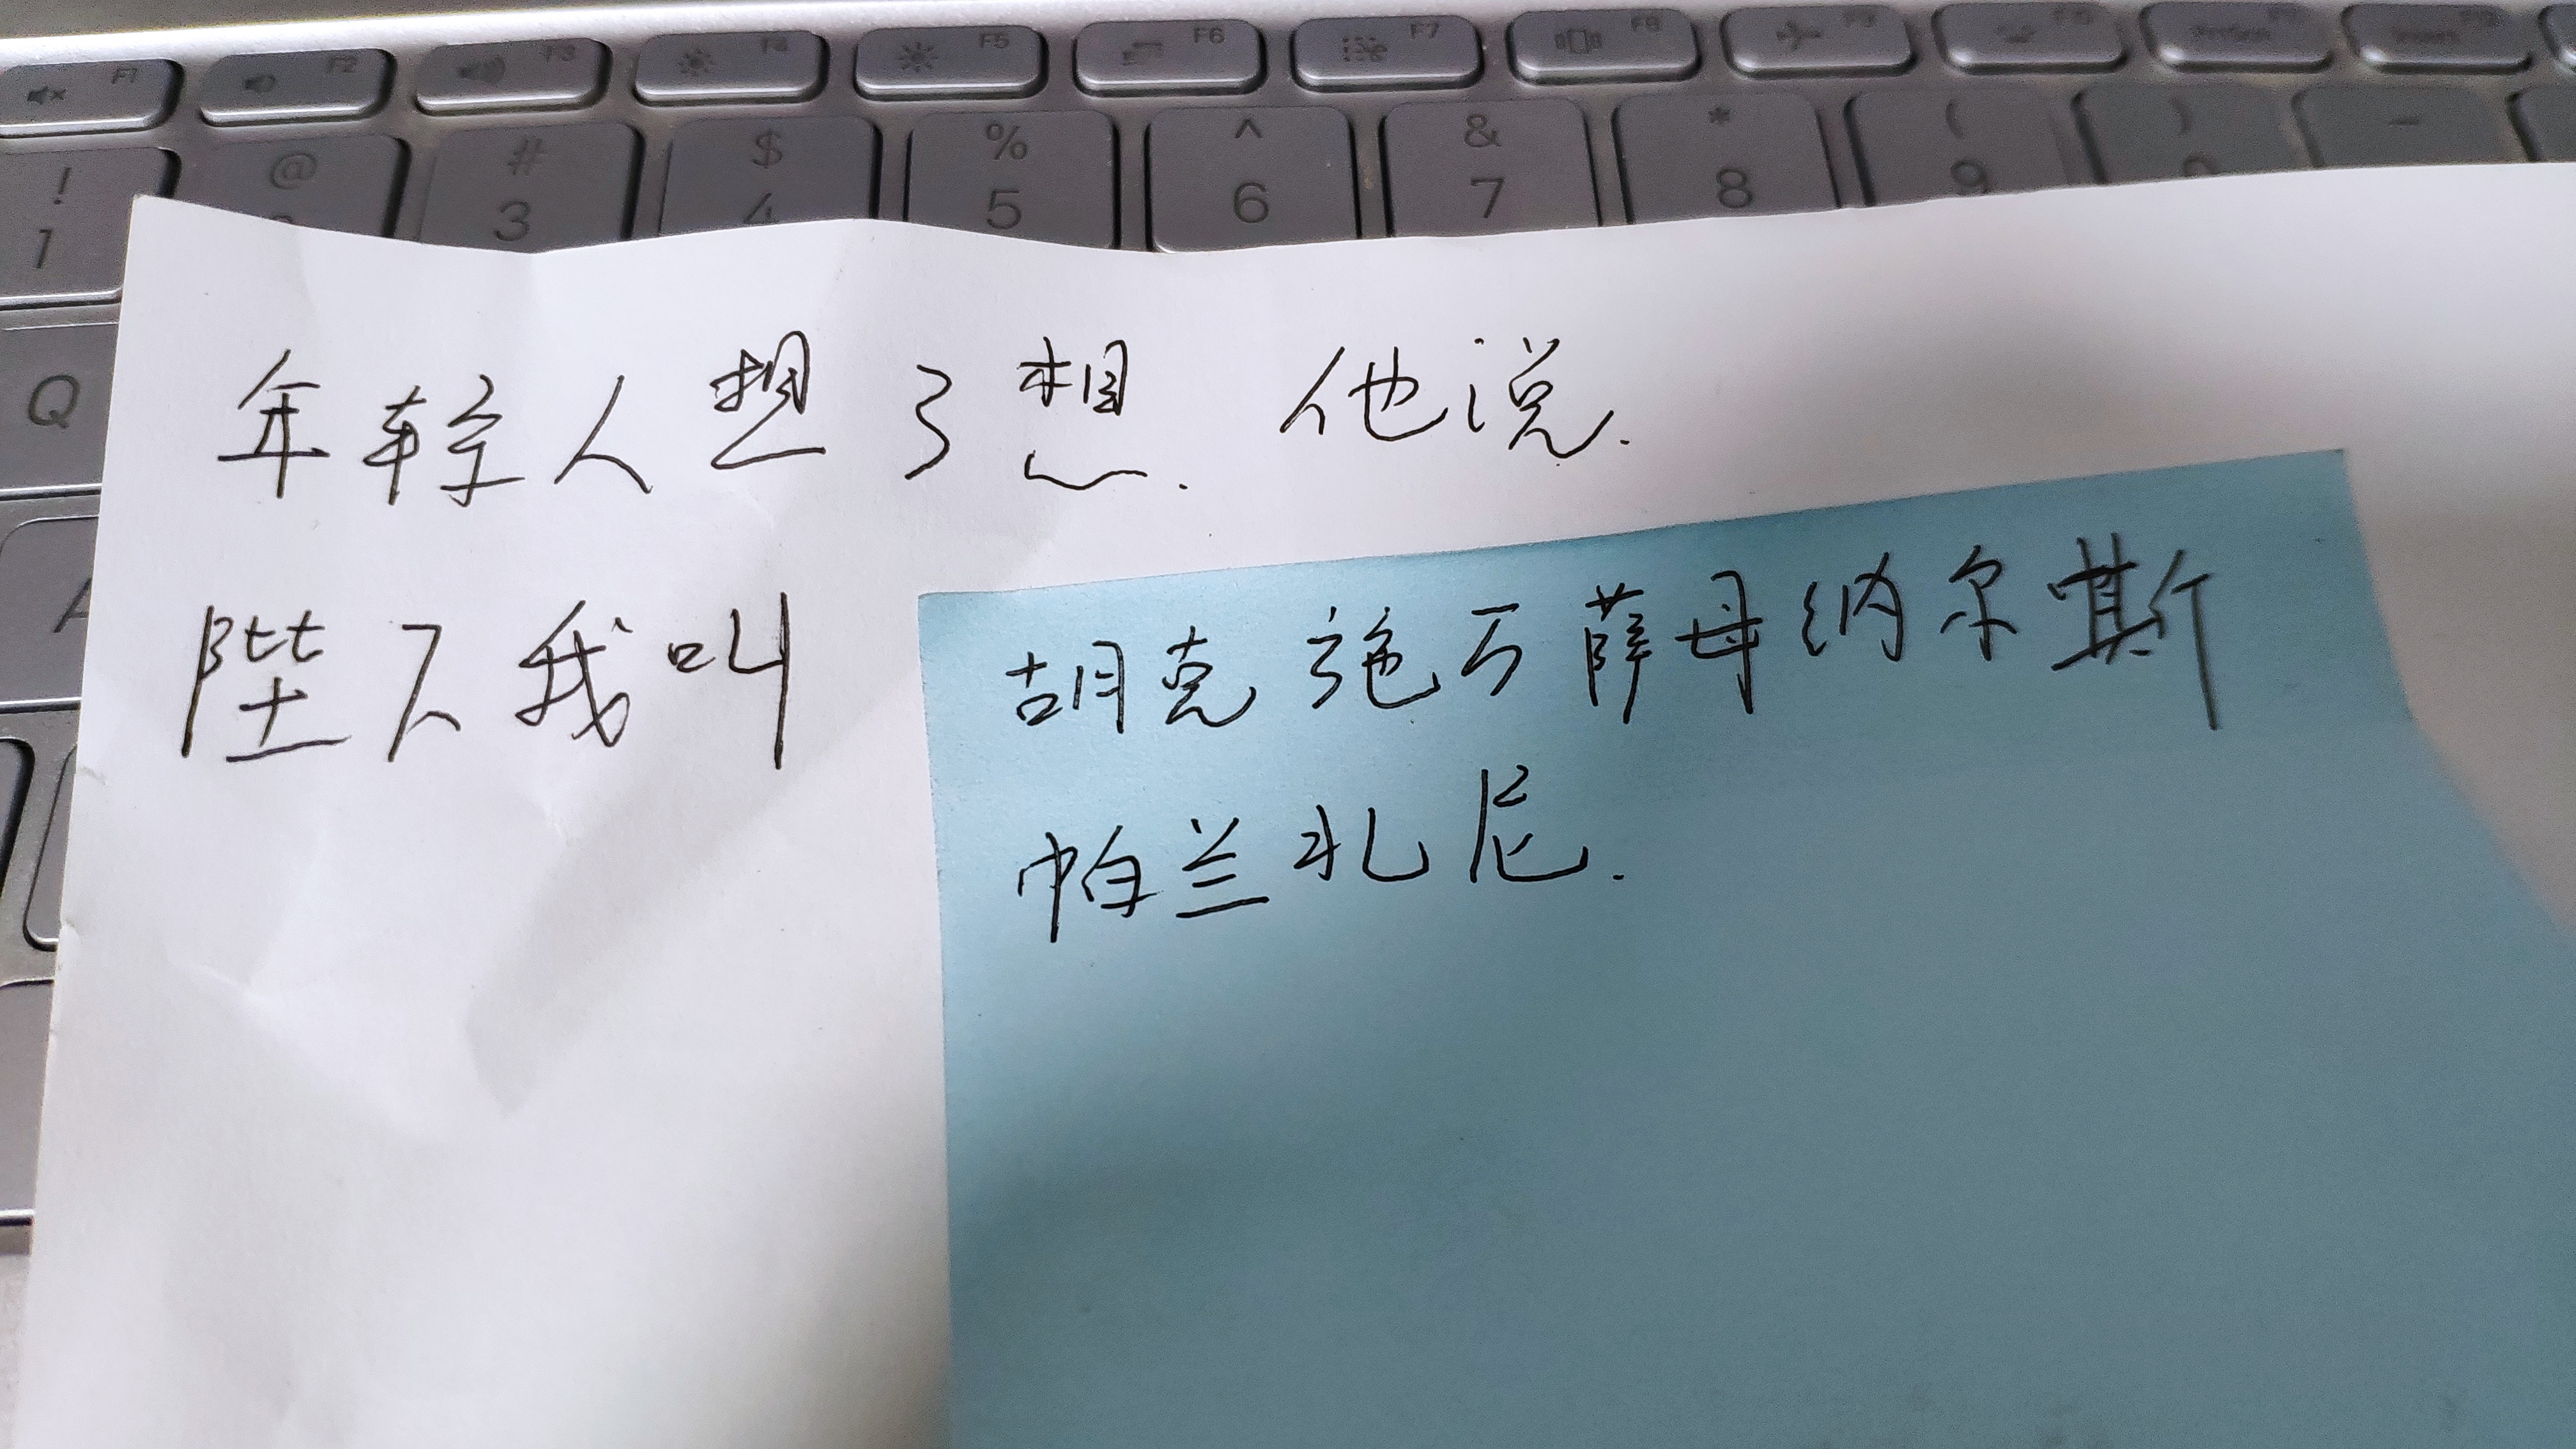 F1 F2 F3 F4 F5 F6 F7 F8 F9 F10 PrtScn
! @ # $ % ^ & * ( ) _
1 3 4 5 6 7 8 9
Q
A
年轻人想了想. 他说.
陛下我叫
胡克施丂萨母纳尔嘶
帕兰扎尼.